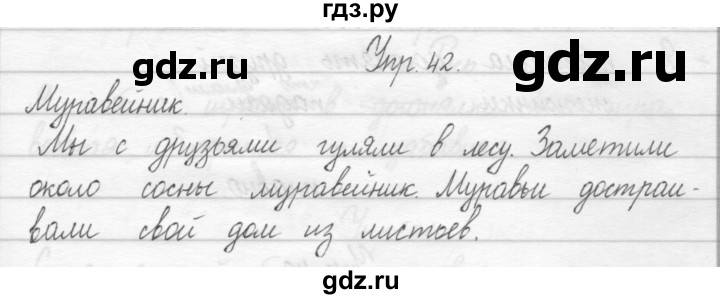 гдз.ру
Упр. 42.
gdz.ru
gdz.ru
Муравейник.
Мы с друзьями гуляли в лесу. Заметили
около сосны муравейник. Муравьи достраи-
вали свой дом из листьев.
gdz.ru